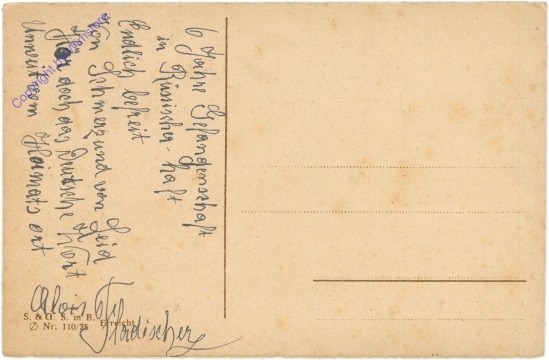 6 Jahre Gefandenschaft
in Rüssischer-haft
Endlich befreit
von Schmerz und von Leid
Hör doch das Deutsche Wort
Unweit vom Heimats ort
Alois
S. & G. S. in B.
Nr. 110/25
Copyright by